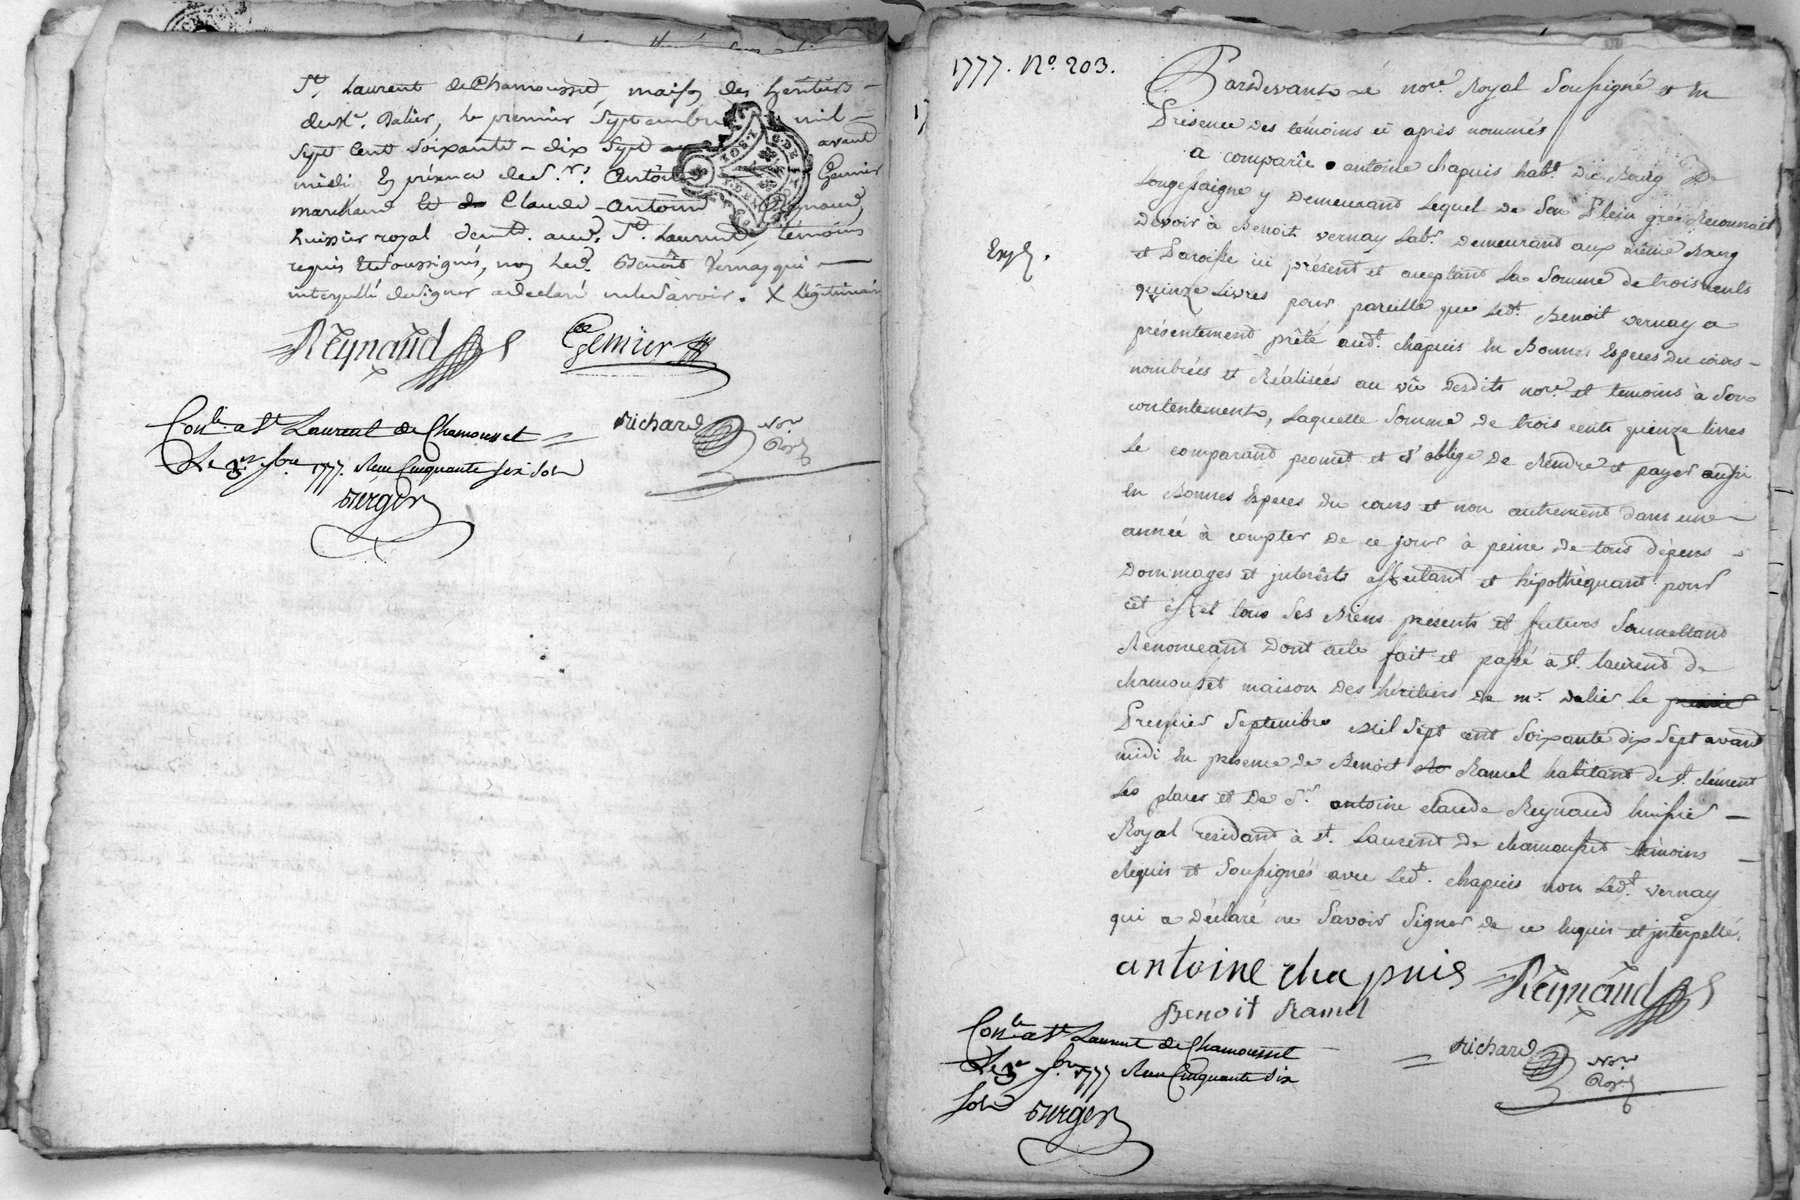 St. Laurent de Chamousset, maison des héritiers
de Mr. Dalier, le premier Septembre mil
Sept Cent Soixante-dix Sept avant
midi En présence de Sr. Antoine Genuier
marchand Et de Claude Antoine Reynaud,
huissier royal demt. aud. St. Laurent, témoins
requis Et soussignés, non led. Benoît Vernay qui
interpellé de signer a declaré ne le savoir.
Reynaud
Genuier
Conlé. a St. Laurent de Chamousset
Le 3e. 7bre 1777. Reçu Cinquante six Sols
Richard Nore
Royl
1777. No. 203.
Pardevant Le nore. Royal Soussigné et En
Présence des témoins ci après nommés
a comparû antoine chapuis habt. du Bourg De
Longessaigne y Demeurand Lequel de Son Plein gré Reconnait
Devoir à Benoit vernay Labr. Demeurand aux même Bourg
et Paroisse ici présent et acceptant La Somme de trois cents
quinze Livres pour pareille que Led. Benoit vernay a
présentement prêté aud. chapuis En Bonnes Especes Du cours
nombrées et Réalisées au vû Desdits nore. et temoins à Son
contentement, Laquelle Somme de trois cents quinze livres
Le comparand promet et s'oblige De Rendre et payer aussi
En Bonnes Especes du cours et non autrement dans une
année à compter De ce jour à peine de tous dépens
Dommages et jnterêts affectand et hipothèquant pour
cet effet tous Ses Biens présents et futurs Soumettand
Renonceand Dont acte fait et passé à St. laurend de
chamousset maison Des héritiers De mr. Dalier le premier
Premier Septembre Mil Sept cent Soixante dix Sept avand
midi En presence de Benoit Ramel habitant de St. clément
Les places et De Sr. antoine claude Reynaud huissier
Royal residand à St. Laurend De chamousset temoins
Requis et Soussignés avec Led. chapuis non Led. vernay
qui a Déclaré ne Savoir Signer de ce Requis et jnterpellé.
antoine chapuis
Reynaud
Benoit Ramel
Conlé. a St. Laurent de Chamousset
Le 3e 7bre 1777 Reçu Cinquante six
Sols
Richard Nore
Royl